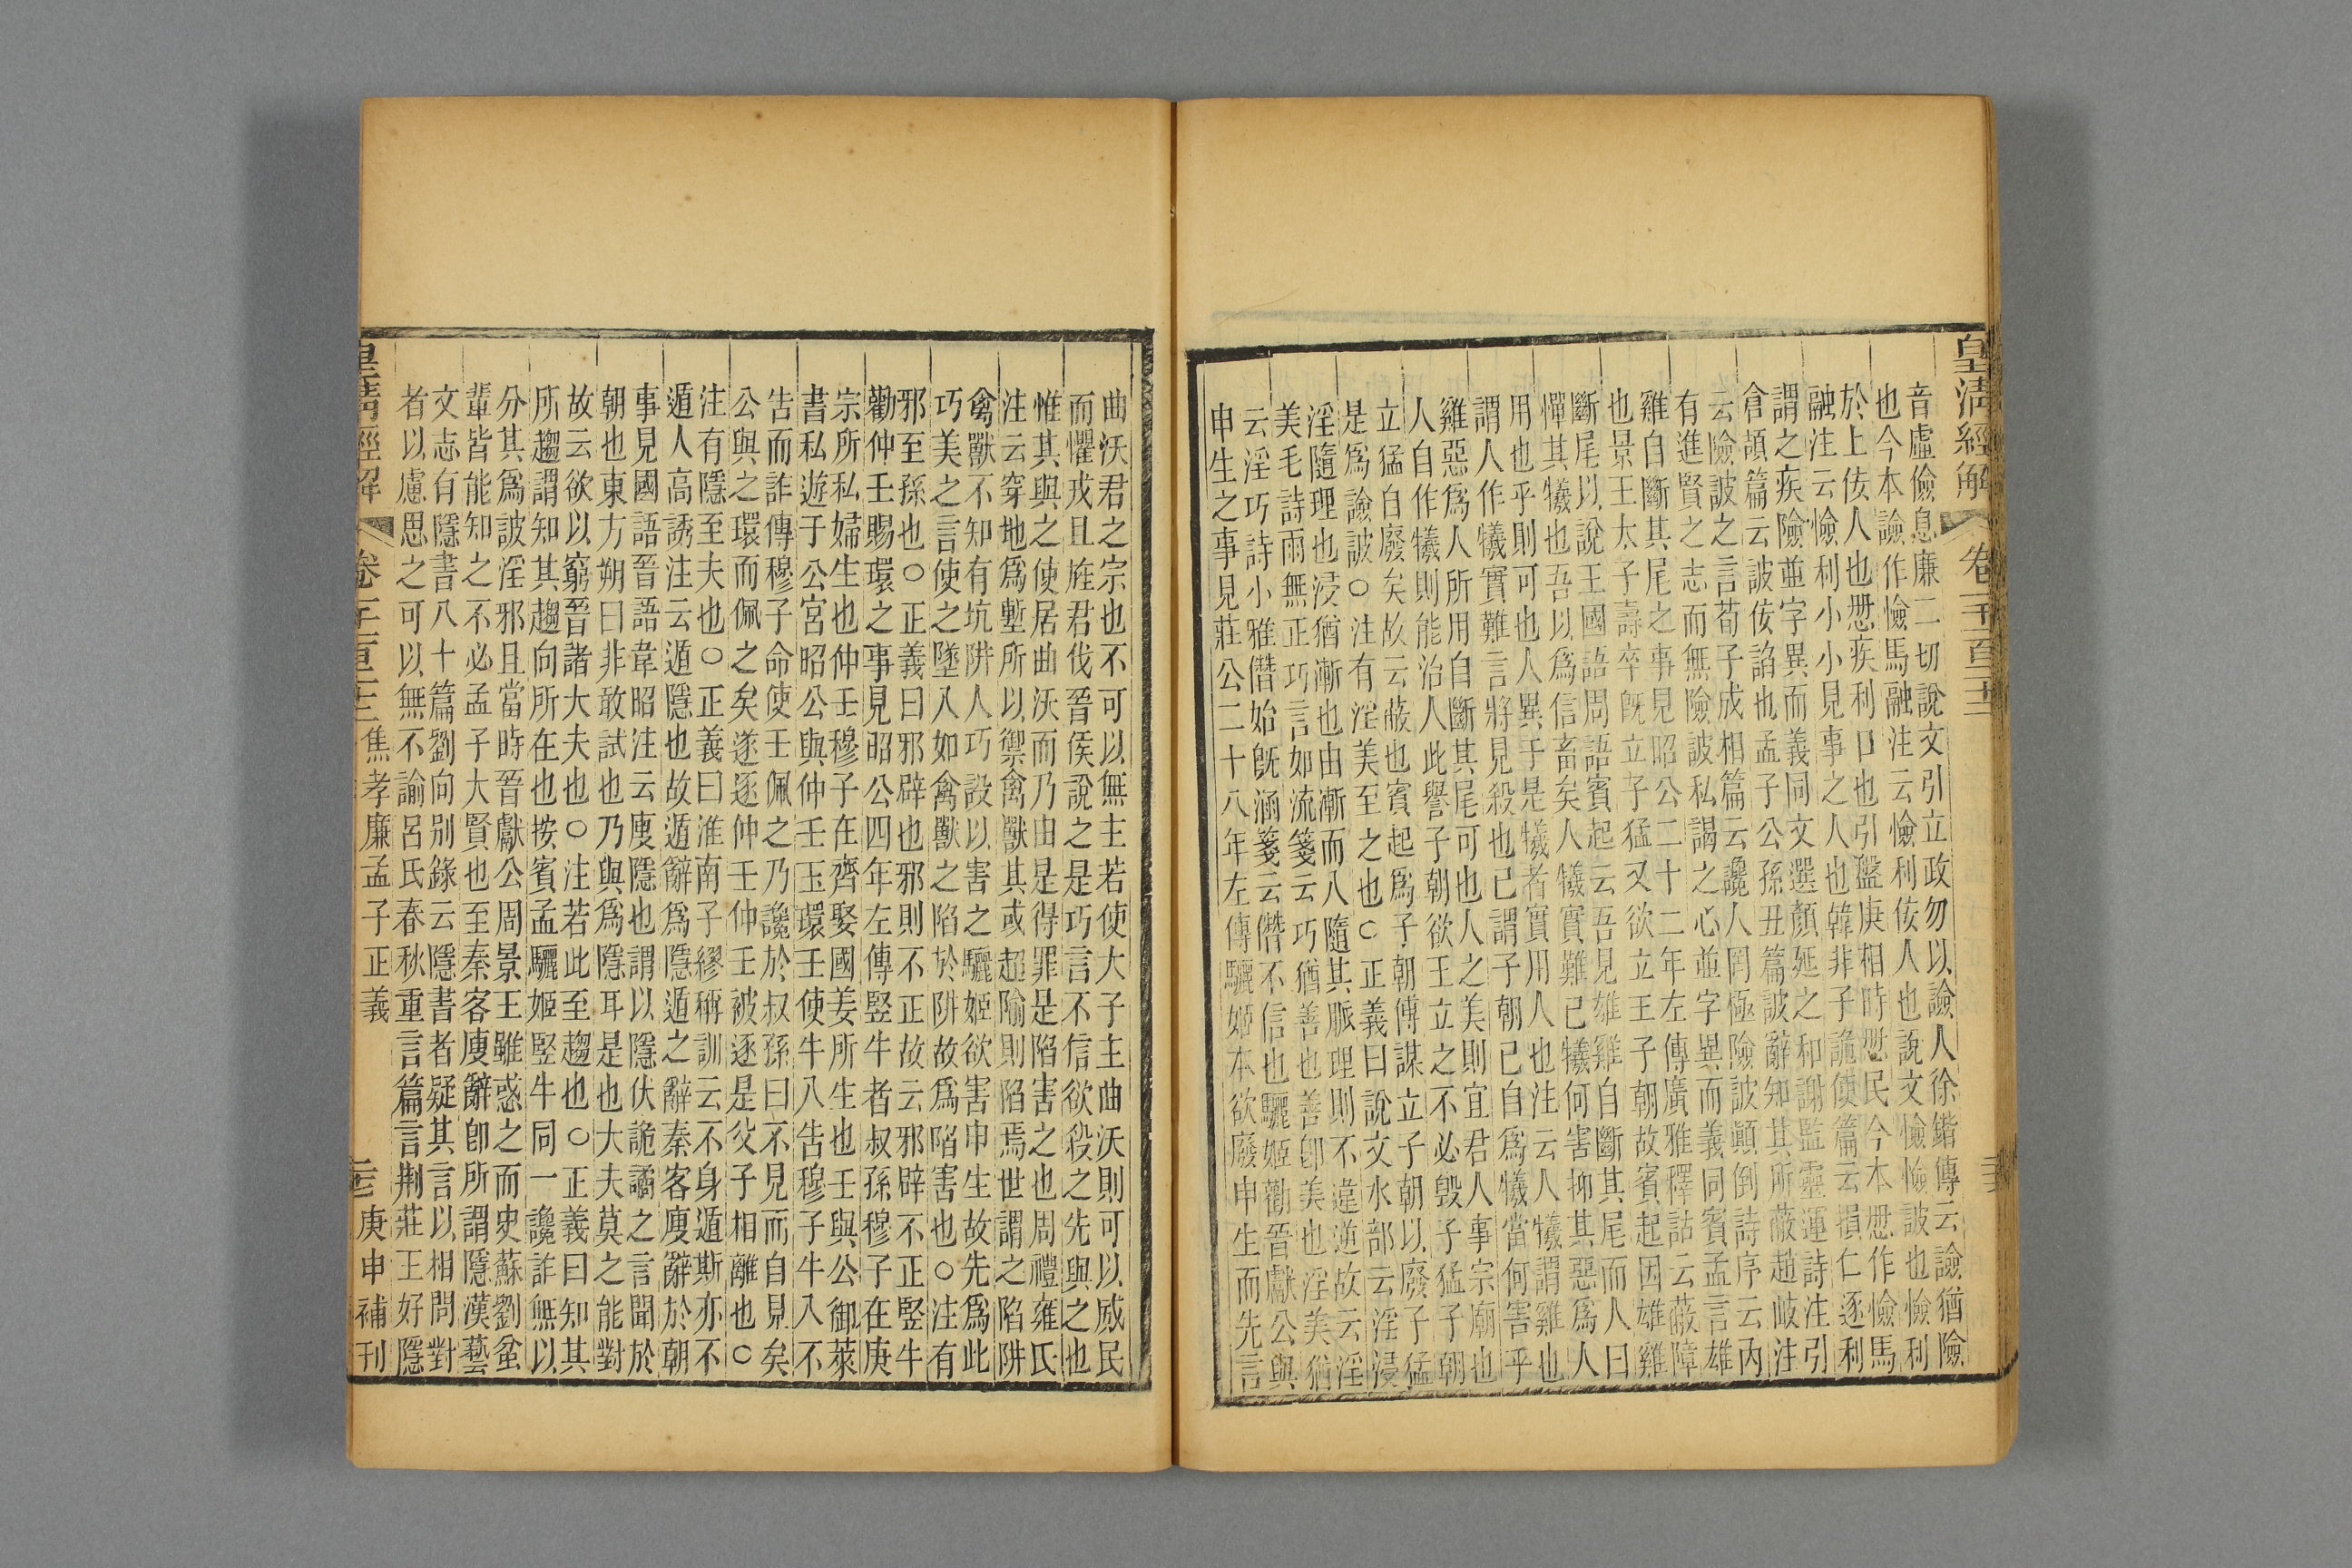 皇清經解
音虛儉息廉二切說文引立政勿以譣人徐鍇傳云譣猶險
也今本譣作憸馬融注云憸利佞人也說文憸憸詖也憸利
於上佞人也𢘍疾利口也引盤庚相時𢘍民今本𢘍作憸馬
融注云憸利小小見事之人也韓非子詭使篇云損仁逐利
謂之疾險並字異而義同文選顏延之和謝監靈運詩注引
倉頡篇云詖佞諂也孟子公孫丑篇詖辭知其所蔽趙岐注
云險詖之言荀子成相篇云讒人罔極險詖顛倒詩序云內
有進賢之志而無險詖私謁之心並字異而義同賓孟言雄
雞自斷其尾之事見昭公二十二年左傳廣雅釋詁云蔽障
也景王太子壽卒旣立子猛又欲立王子朝故賓起因雄雞
斷尾以說王國語周語賓起云吾見雄雞自斷其尾而人曰
憚其犧也吾以爲信畜矣人犧實難已犧何害抑其惡爲人
用也乎則可也人異于是犧者實用人也注云人犧謂雞也
謂人作犧實難言將見殺也已謂子朝已自爲犧當何害乎
雞惡爲人所用自斷其尾可也人之美則宜君人事宗廟也
人自作犧則能治人此譽子朝欲王立之不必毀子猛子朝
立猛自廢矣故云蔽也賓起爲子朝傳謀立子朝以廢子猛
是爲譣詖○注有淫美至之也○正義曰說文水部云淫浸
淫隨理也浸猶漸也由漸而入隨其脈理則不違逆故云淫
美毛詩雨無正巧言如流箋云巧猶善也善卽美也淫美猶
云淫巧詩小雅僭始旣涵箋云僭不信也驪姬勸晉獻公與
申生之事見莊公二十八年左傳驪姬本欲廢申生而先言
曲沃君之宗也不可以無主若使大子主曲沃則可以威民
而懼戎且旌君伐晉侯說之是巧言不信欲殺之先與之也
惟其與之使居曲沃而乃由是得罪是陷害之也周禮雍氏
注云穿地爲塹所以禦禽獸其或超隃則陷焉世謂之陷阱
禽獸不知有坑阱人巧設以害之驪姬欲害申生故先爲此
巧美之言使之墜入如禽獸之陷於阱故爲陷害也○注有
邪至孫也○正義曰邪辟也邪則不正故云邪辟不正豎牛
勸仲壬賜環之事見昭公四年左傳豎牛者叔孫穆子在庚
宗所私婦生也仲壬穆子在齊娶國姜所生也壬與公御萊
書私遊于公宮昭公與仲壬玉環壬使牛入告穆子牛入不
告而詐傳穆子命使壬佩之乃讒於叔孫曰不見而自見矣
公與之環而佩之矣遂逐仲壬仲壬被逐是父子相離也○
注有隱至夫也○正義曰淮南子繆稱訓云不身遁斯亦不
遁人高誘注云遁隱也故遁辭爲隱遁之辭秦客廋辭於朝
事見國語晉語韋昭注云廋隱也謂以隱伏詭譎之言聞於
朝也東方朔曰非敢試也乃與爲隱耳是也大夫莫之能對
故云欲以窮晉諸大夫也○注若此至趨也○正義曰知其
所趨謂知其趨向所在也按賓孟驪姬豎牛同一讒詐無以
分其爲詖淫邪且當時晉獻公周景王雖惑之而史蘇劉蚠
輩皆能知之不必孟子大賢也至秦客廋辭卽所謂隱漢藝
文志有隱書八十篇劉向别錄云隱書者疑其言以相問對
者以慮思之可以無不諭呂氏春秋重言篇言荆莊王好隱
皇清經解 焦孝廉孟子正義 庚申補刊